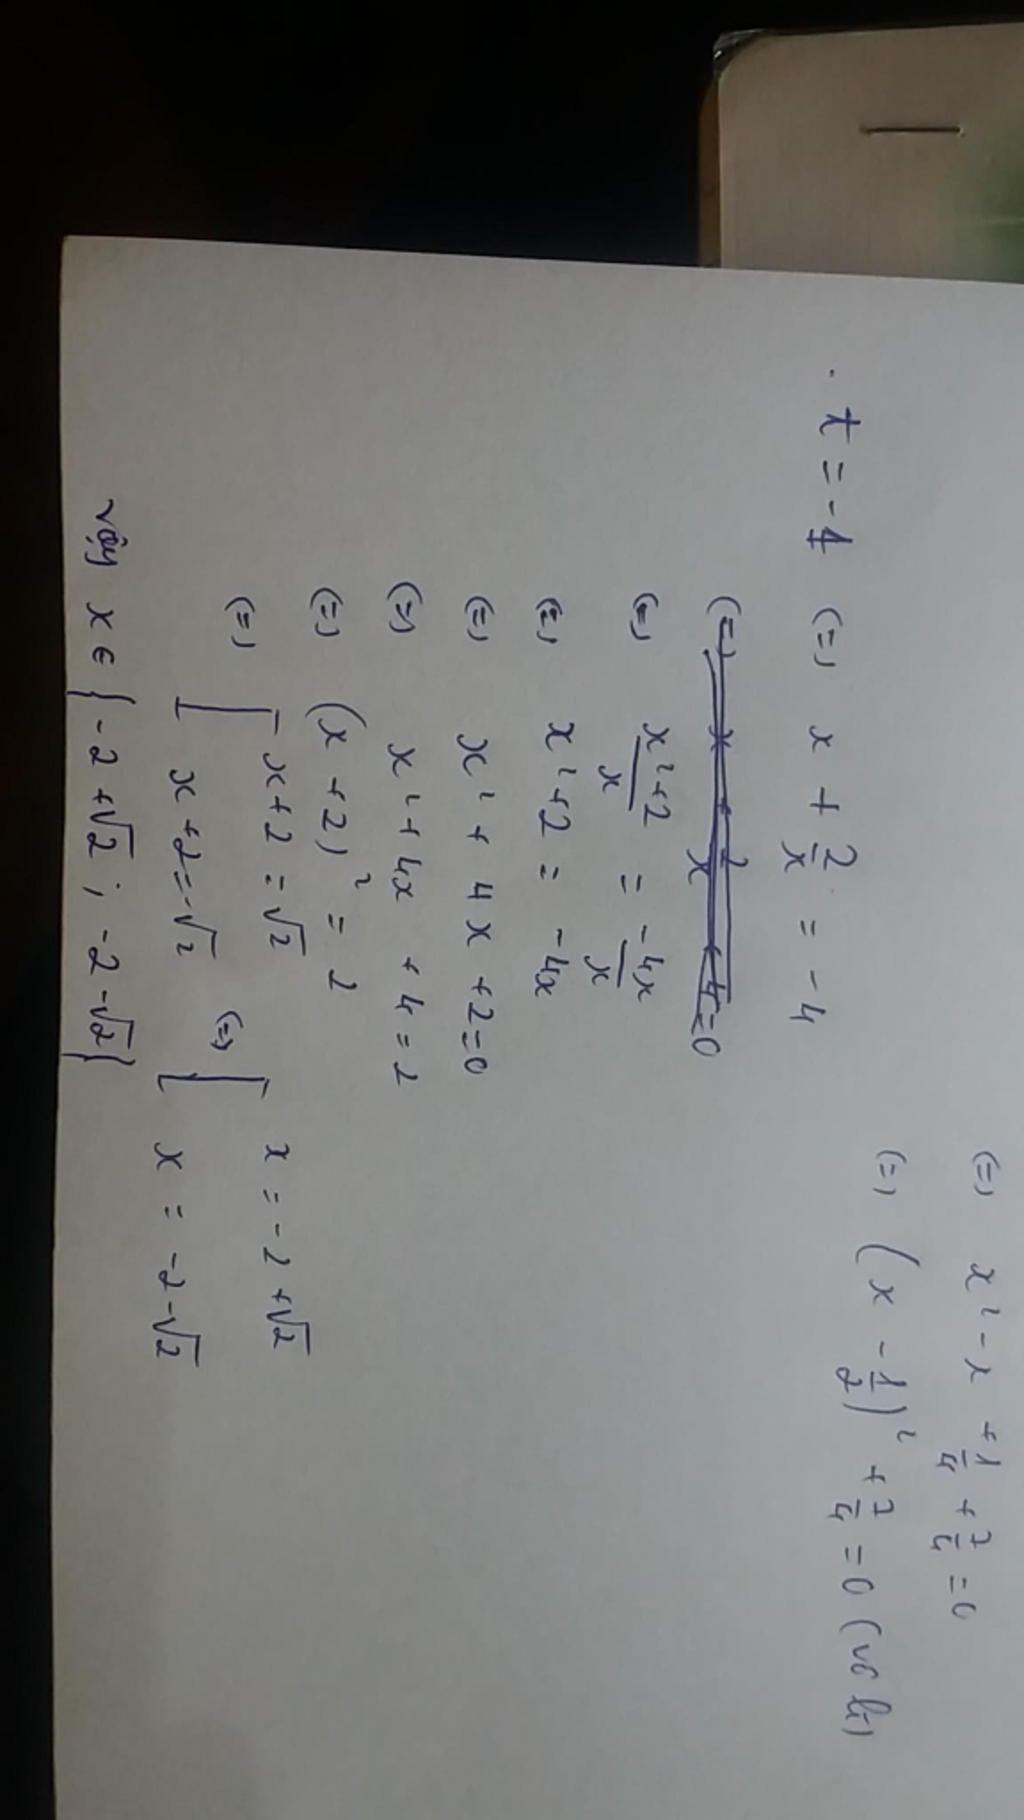 (=) x² - x + 1/4 + 7/4 = 0
(=) (x - 1/2)² + 7/4 = 0 (vô lí)
. t = -4 (=) x + 2/x = -4
(=) (x²+2)/x = -4x/x
(=) x²+2 = -4x
(=) x² + 4x + 2 = 0
(=) x² + 4x + 4 = 2
(=) (x + 2)² = 2
(=) [ x+2 = √2 (=) [ x = -2 + √2
x+2 = -√2 x = -2 - √2
vậy x ∈ { -2 + √2 ; -2 - √2 }